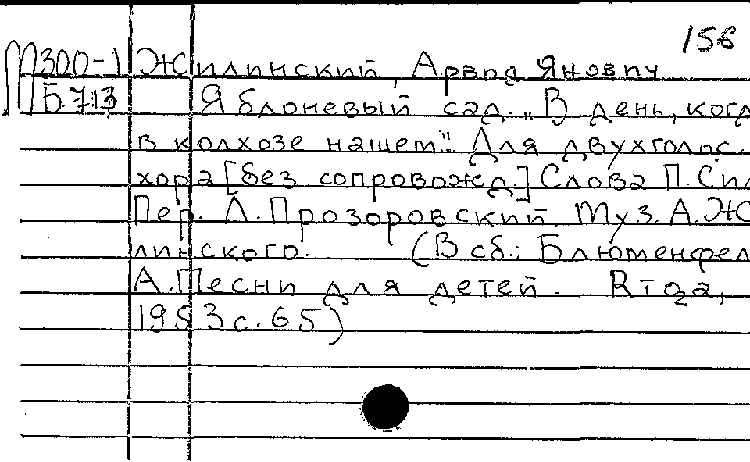 156
М300-1 Жилинский, Арвид Янович
Б713 Яблоневый сад. "В день, когд
в колхозе нашем". Для двухголос.
хора [без сопровожд.] Слова П. Сил
Пер. Л. Прозоровский Муз. А. Жи
линского. (В сб.: Блюменфел
А. Песни для детей. Рига,
1953 с. 65)